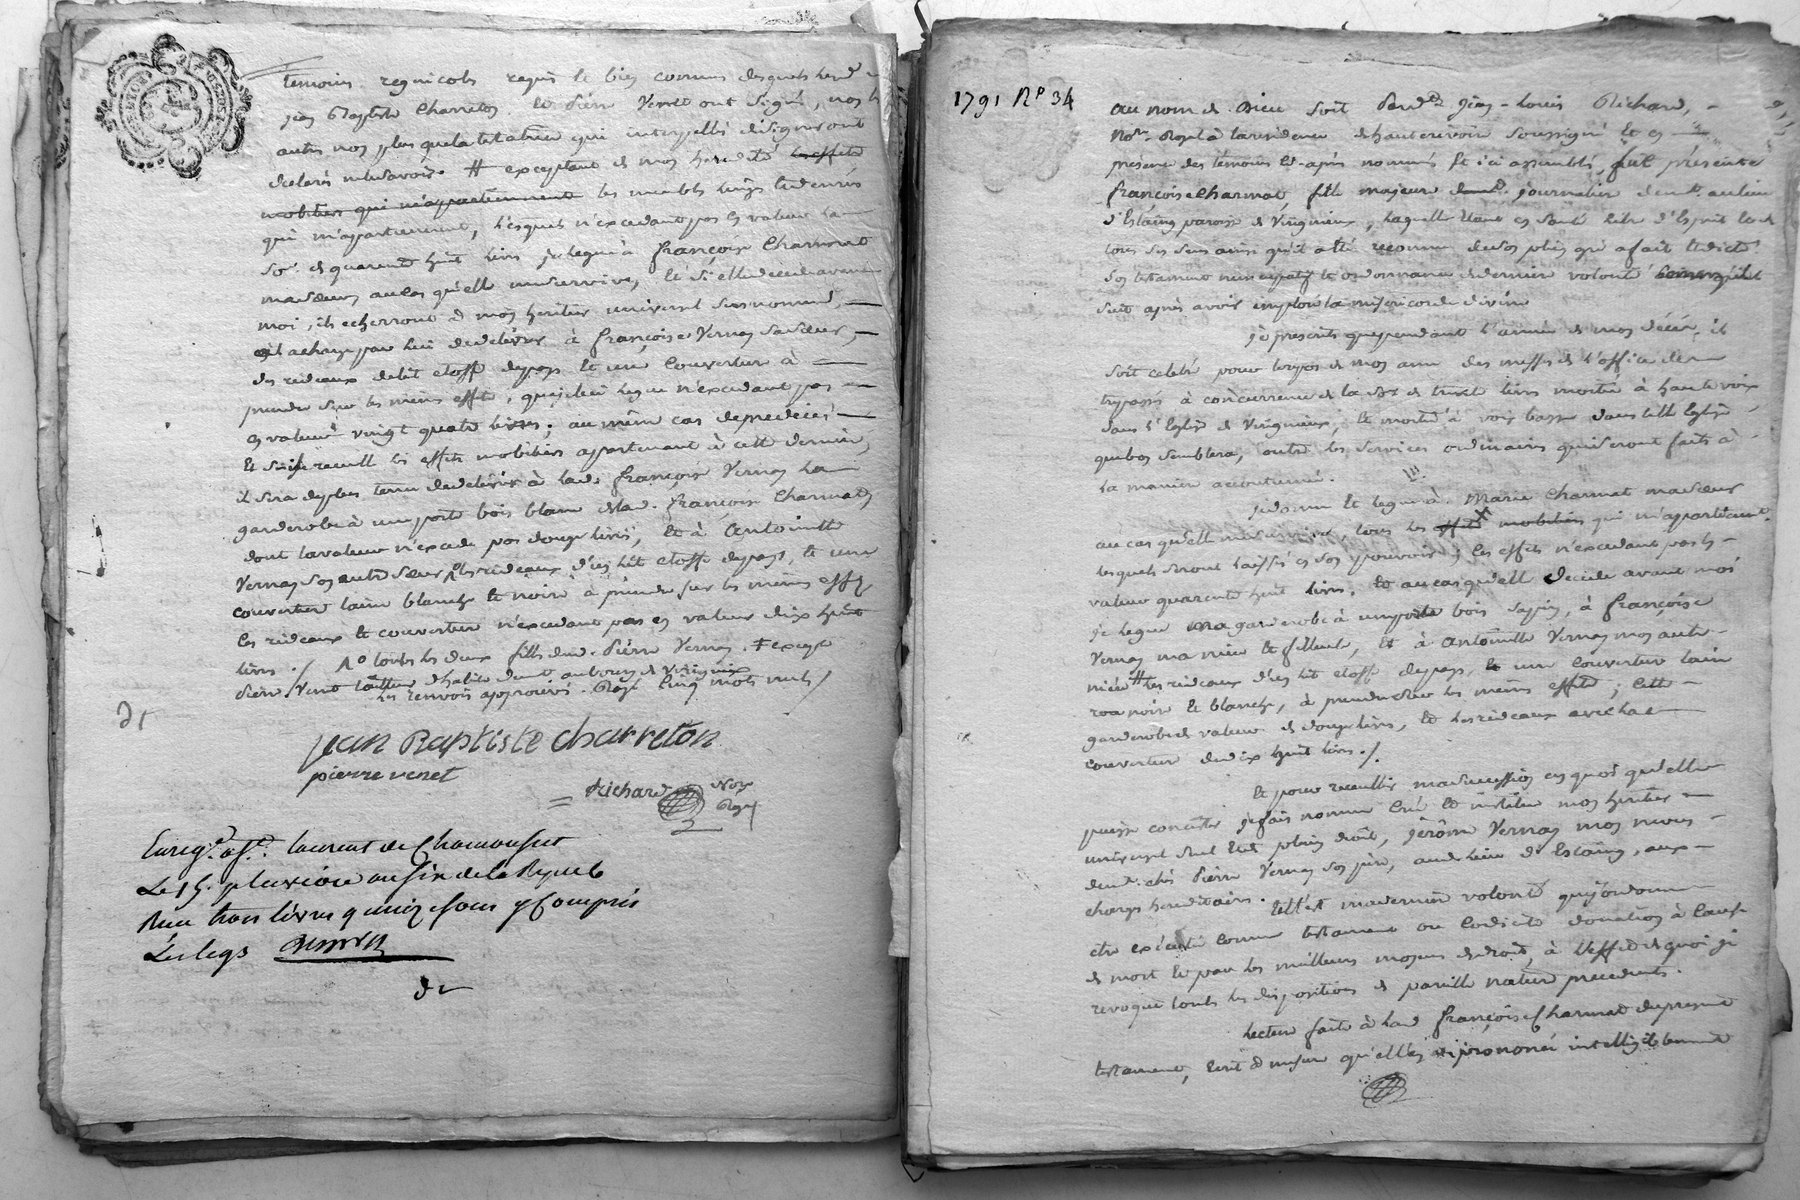 temoins regnicoles requis et bien connus desquels led
jean Baptiste Charreton et Pierre Venet ont signé, non les
autres non plus que la testatrice qui interpellés de signer ont
declaré ne le savoir. # exceptant de mon heredité les effets
mobiliers qui m'appartiennent les meubles linges et denrées
qui m'appartiennent, lesquels n'excedant pas en valeur la
so. de quarante huit livres je legue à françoise Charmat
ma sœur au cas qu'elle me survive, et si elle decede avant
moi, ils echerront à mon heritier universel susnommé,
à la charge par lui de delivrer à françoise Vernay sa sœur,
des rideaux de lit etoffe du pays et une couverture à
prendre sur les memes effets, que je lui legue n'excedant pas
en valeur vingt quatre livres; au même cas de predecès
et s'il recueille les effets mobiliers appartenant à cette derniere,
il sera de plus tenu de delivrer à lad. françoise Vernay la
garderobe à une porte bois blanc de lad. françoise Charmat,
dont la valeur n'excede pas douze livres, et à Antoinette
Vernay son autre sœur les rideaux d'un lit etoffe du pays, et une
couverture laine blanche et noire à prendre sur les memes effets
les rideaux et couverture n'excedant pas en valeur dix huit
livres ./ toutes les deux filles dud. Pierre Vernay. # excepté
Pierre Venet tailleur d'habits demt au bourg de Virigneux
les renvois approuvés. Rayé cinq mots nuls /
jean Baptiste charreton
pierre venet
Richard Nore
Royal
Enregt. à St. laurent de Chamousset
Le 15. pluviose an six de la Repube
Reçu trois livres quinze sous y compris
Les legs
1791 No 34
Au nom de Dieu soit Pardt jean-Louis Richard,
Nore Royal à la residence d'hauterivoire soussigné et en
presence des temoins ci-après nommés et ici assemblés, fut présente
françoise Charmat, fille majeure journaliere demt. au lieu
d'Estaing paroisse de Virigneux, laquelle etant en santé libre d'Esprit et de
tous ses sens ainsi qu'il a été reconnu de son plein gré a fait et dicté
son testament nuncupatif et ordonnance de derniere volonté comme s'ensuit
suit après avoir imploré la misericorde divine
je prescris que pendant l'année de mon décès, il
soit celebré pour le repos de mon ame des messes de l'office des
trepassés à concurrence de la so. de trente livres moitié à haute voix
dans l'Eglise de Virigneux, et moitié à voix basse dans telle Eglise
que bon semblera, outre les services ordinaires qui seront faits à
la maniere accoutumée.
je donne et legue à Marie Charmat ma sœur
au cas qu'elle me survive, tous les effets mobiliers qui m'appartiennt.
lesquels seront laissés en son pouvoir; les effets n'excedant pas en
valeur quarante huit livres. et au cas qu'elle decede avant moi
je legue ma garderobe à une porte bois sapin, à françoise
Vernay ma niece et filleule, et à Antoinette Vernay mon autre
niece # les rideaux d'un lit etoffe du pays, et une couverture laine
noire et blanche, à prendre sur les memes effets; cette
garderobe de valeur de douze livres, et les rideaux avec la
couverture de dix huit livres ./
Et pour recueillir ma succession en quoi qu'elle
puisse consister je fais nomme crée et institue mon heritier
universel seul et de plein droit, jérôme Vernay mon neveu
demt. chés Pierre Vernay son pere, aud. lieu d'Estaing, aux
charges hereditaires. telle est ma derniere volonté que j'ordonne
etre executée comme testament ou codicile donation à cause
de mort et par les meilleurs moyens de droit, à l'effet de quoi je
revoque toutes les dispositions de pareille nature precedentes.
lecture faite à lad françoise Charmat du present
testament, ecrit à mesure qu'elle l'a prononcé intelligiblement